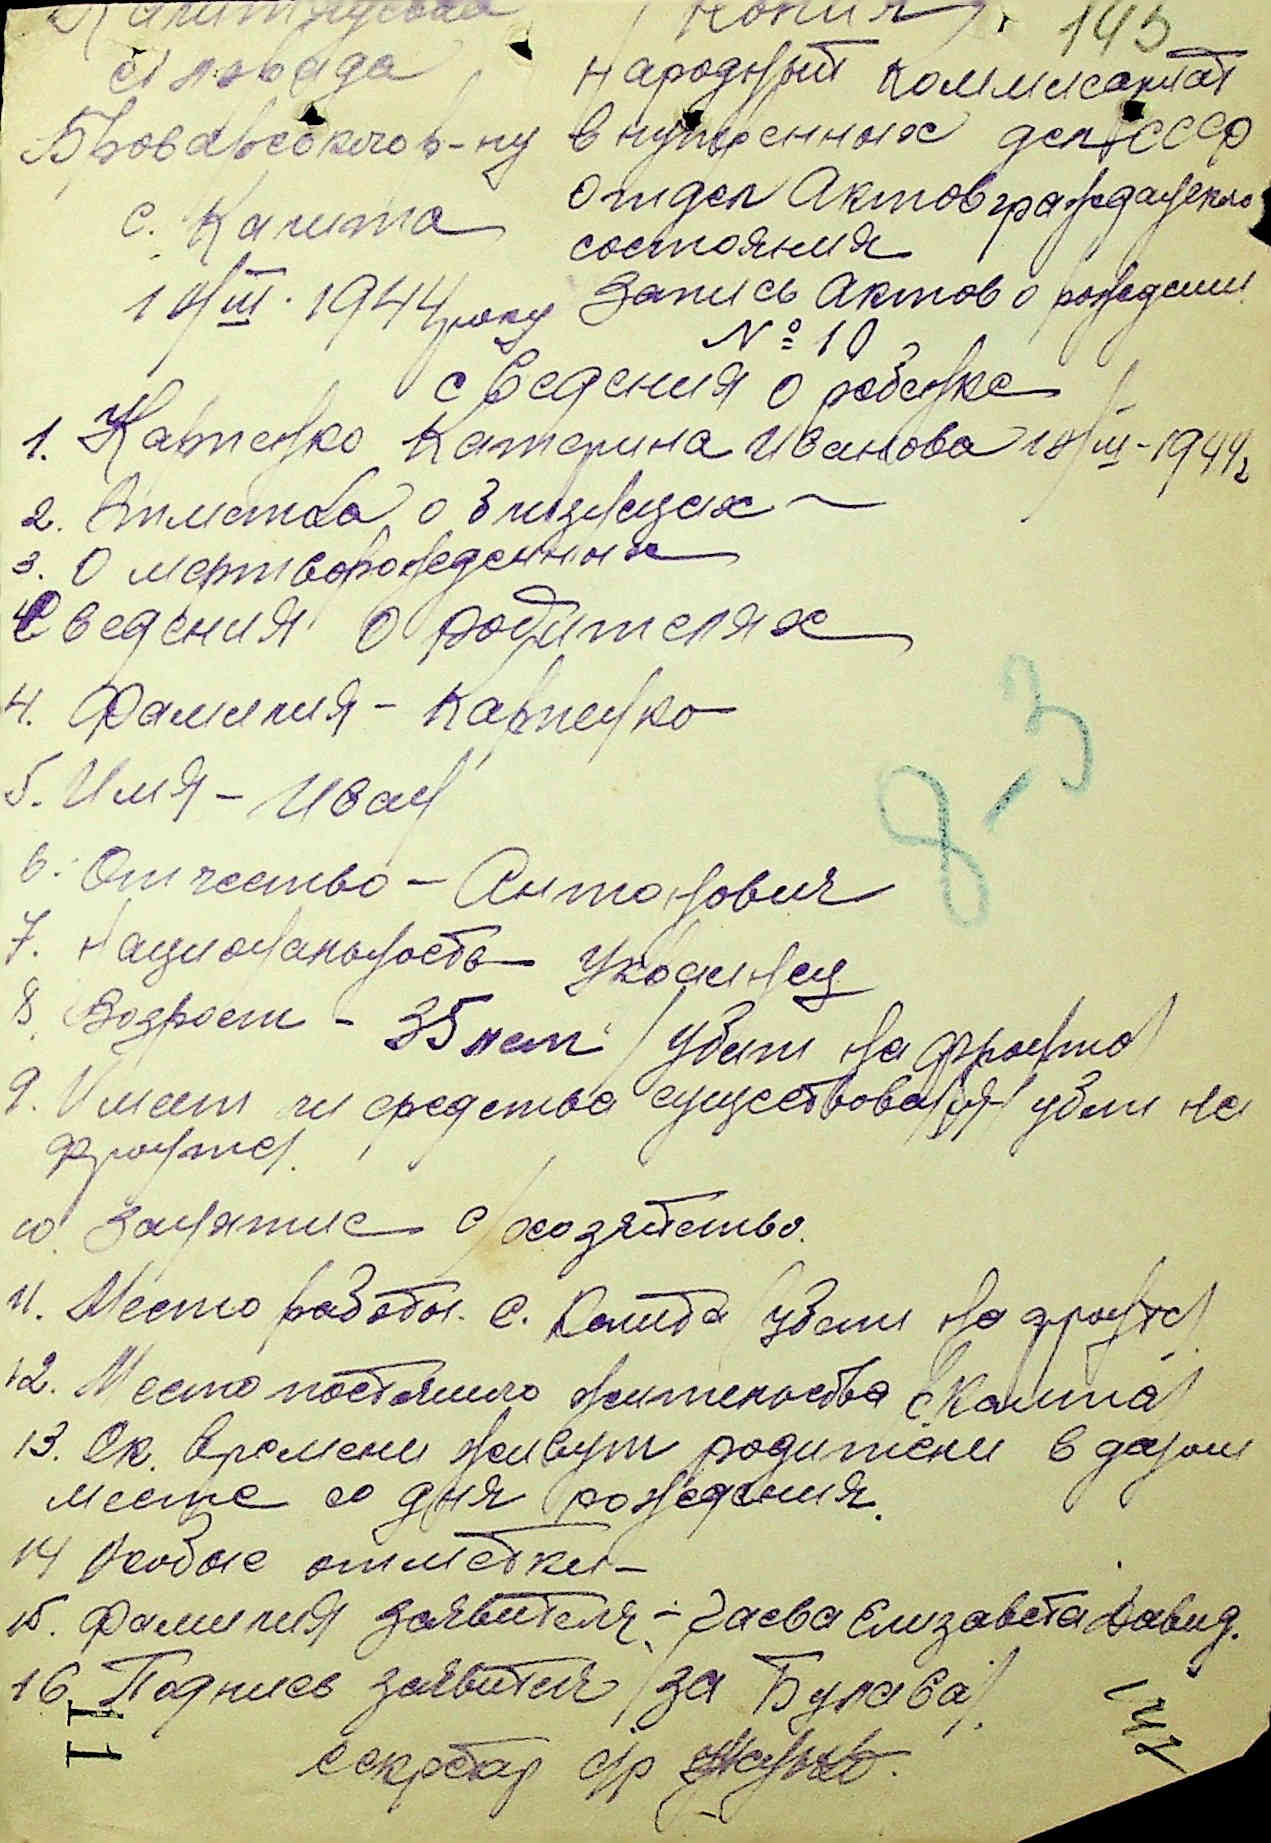 Калитянская Копия 145
сільрада
Броварського р-ну
с. Калита
10/III. 1944 року
Народный Коммисариат
внутренных дел СССР
отдел Актов гражданского
состояния
Запись Актов о рождении
№ 10
Сведения о ребенке
1. Карпенко Катерина Иванова 10/III-1944 г
2. Отметка о близнецах —
3. О мертворожденных
Сведения о родителях
4. Фамилия - Карпенко
5. Имя - Иван
6. Отчество - Антонович
7. Национальность - Украинец
8 Возраст - 35 лет /убит на фронте/
9. Имеет ли средства существования /убит на
фронте/.
10. Занятие с/хозяйство.
11. Место работы. с. Калита /убит на фронте/
12. Место постоянного жительства с Калита
13. Ск. времени живут родители в даном
месте со дня рождения.
14 Особые отметки -
15. Фамилия заявителя - Гаева Елизавета Давид.
16 Подпись заявителя /за Булава/.
секретар с/р
8-3
142